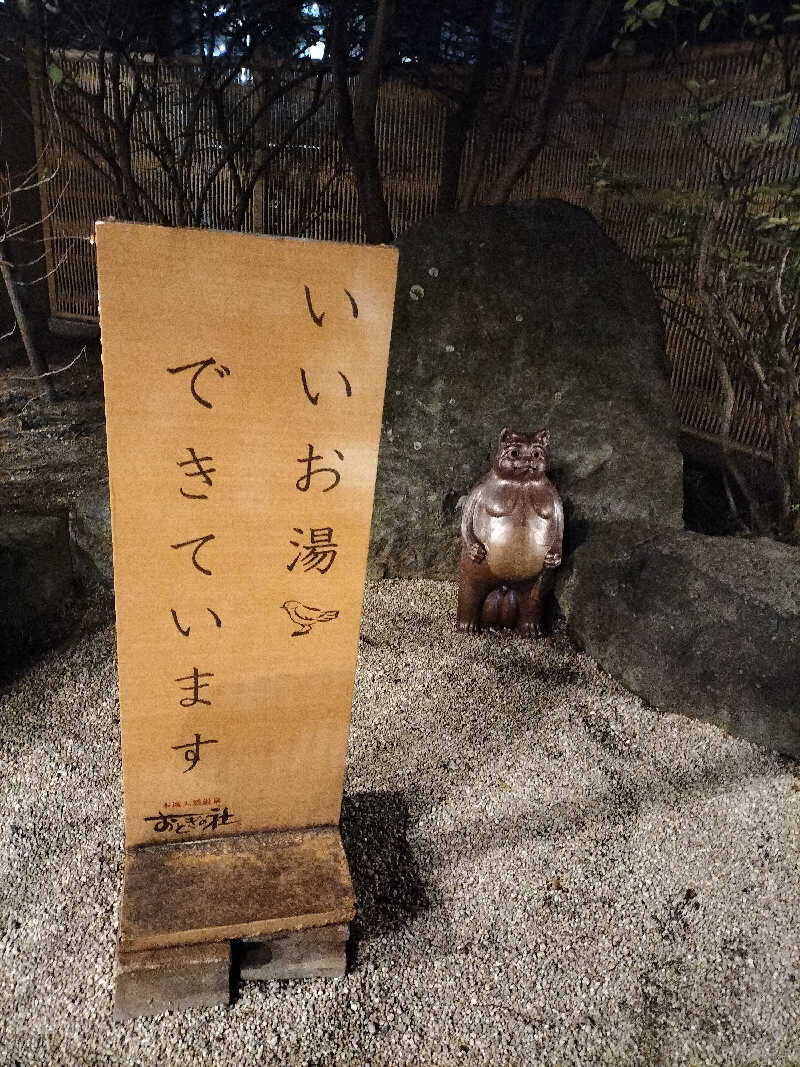 いいお湯
できています
おとぎの社